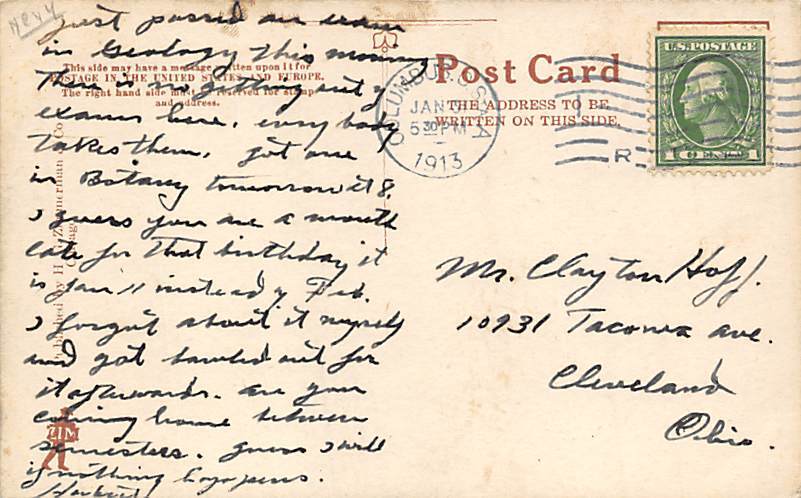 Just passed an exam
in Geology this morning
There is no getting out of
exams here, everybody
takes them, got one
in Botany tomorrow at 8.
I guess you are a month
late for that birthday it
is Jan 11 instead of Feb.
I forgot about it myself
and got bawled out for
it afterwards. Are you
coming home between
semesters. Guess I will
if nothing happens.
This side may have a message written upon it for
POSTAGE IN THE UNITED STATES AND EUROPE.
The right hand side must be reserved for stamp
and address.
Published by H. G. Zimmerman & Co.
Chicago
ZIM
Post Card
THE ADDRESS TO BE
WRITTEN ON THIS SIDE
COLUMBUS, O. U.S.A
JAN
5 30 PM
1913
R
U.S. POSTAGE
1 CENT 1
Mr. Clayton Hoff.
10931 Tacoma Ave.
Cleveland
Ohio.